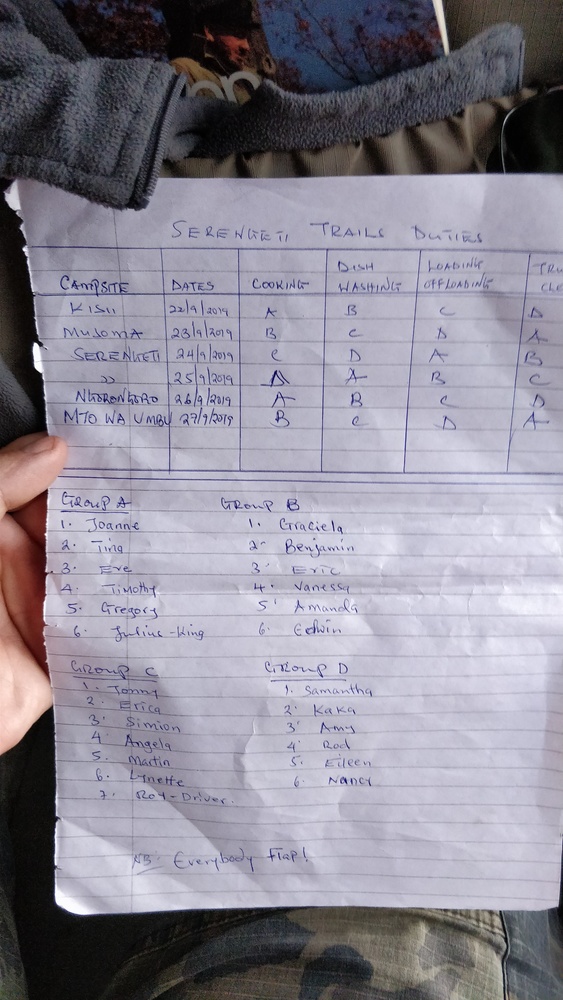 SERENGETI TRAILS DUTIES
CAMPSITE DATES COOKING DISH WASHING LOADING OFFLOADING TRU CLE
KISII 22/9/2019 A B C D
MUSOMA 23/9/2019 B C D A
SERENGETI 24/9/2019 C D A B
>> 25/9/2019 D A B C
NGORONGORO 26/9/2019 A B C D
MTO WA UMBU 27/9/2019 B C D A
GROUP A GROUP B
1. Joanne 1. Graciela
2. Tina 2. Benjamin
3. Eve 3. Eric
4. Timothy 4. Vanessa
5. Gregory 5. Amanda
6. Julius-King 6. Edwin
GROUP C GROUP D
1. Tonny 1. Samantha
2. Erica 2. Kaka
3. Simion 3. Amy
4. Angela 4. Rod
5. Martin 5. Eileen
6. Lynette 6. Nancy
7. Roy-Driver.
NB: Everybody Flap!